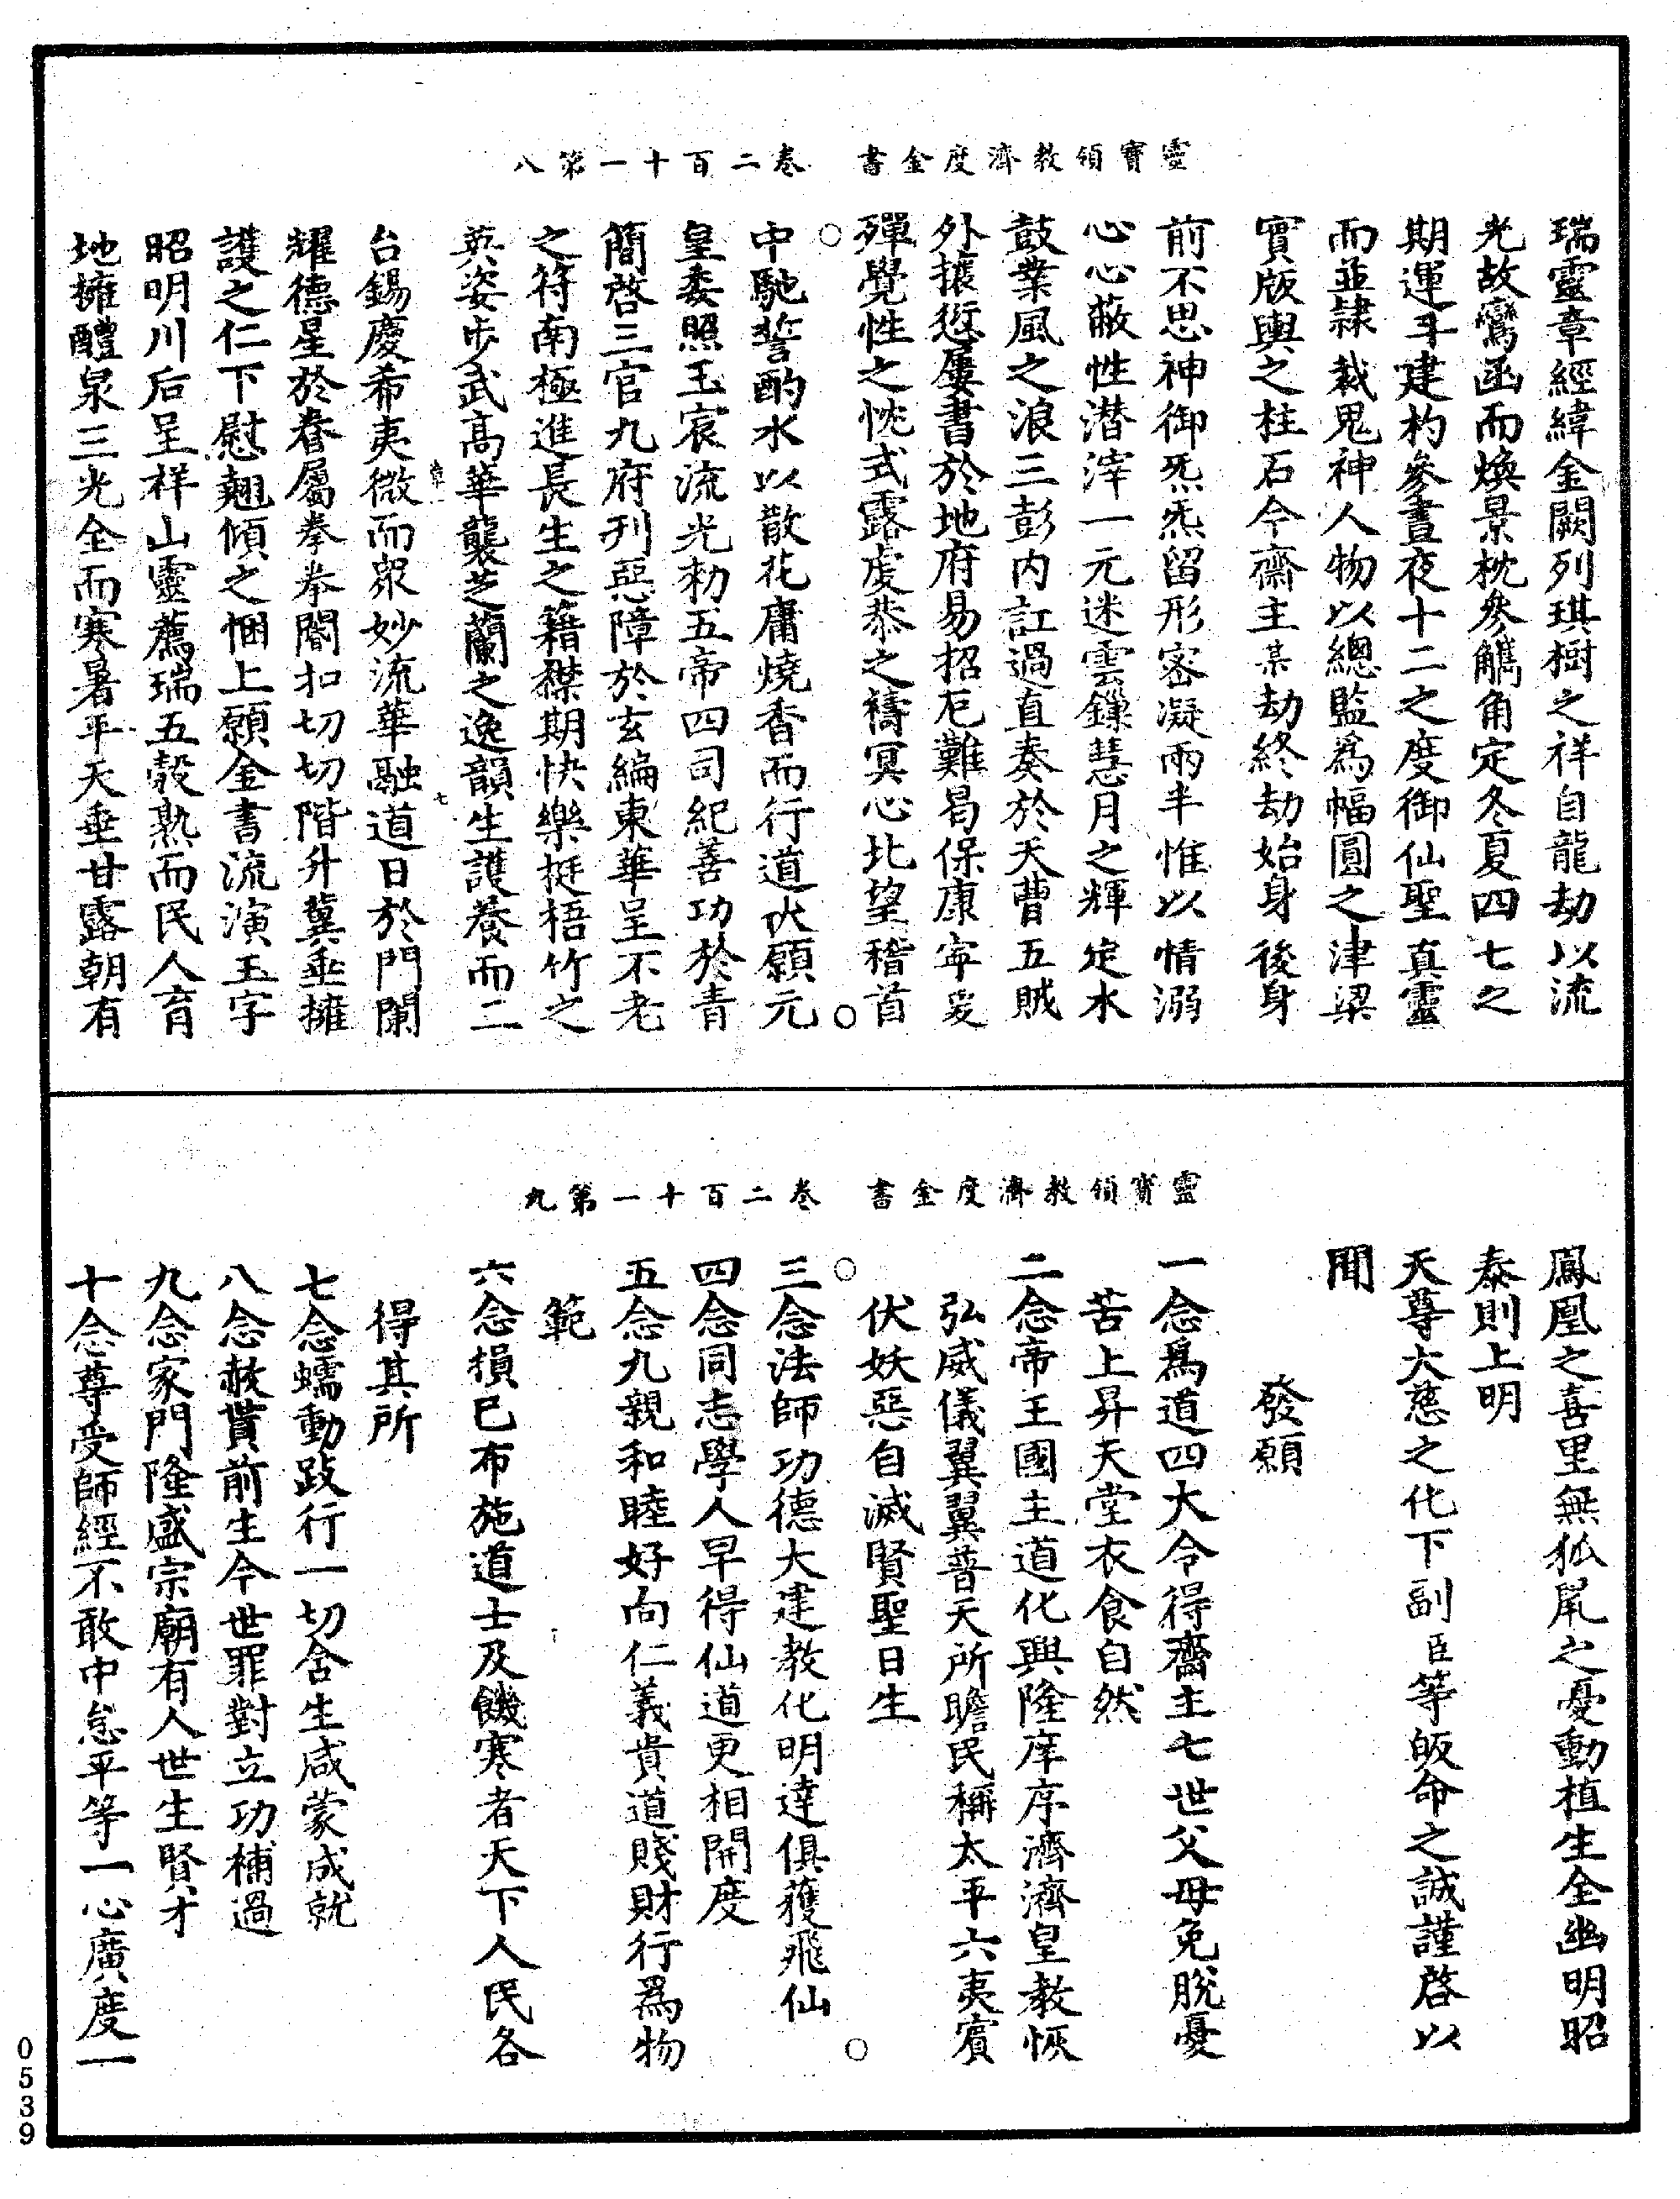 靈寶領教濟度金書　卷二百一十　第八
瑞靈章經緯金闕列琪樹之祥自龍劫以流
光故鸞函而煥景枕參觿角定冬夏四七之
期運斗建杓參晝夜十二之度御仙聖真靈
而並隷裁鬼神人物以總監為幅圓之津梁
實版輿之柱石今齋主某劫終劫始身後身
前不思神御炁炁留形密凝兩半惟以情溺
心心蔽性潜滓一元迷雲鏁慧月之輝定水
鼓業風之浪三彭内訌過直奏於天曹五賊
外攘愆屢書於地府易招厄難曷保康寜爰
殫覺性之忱式露虔恭之禱冥心北望稽首
中馳誓酌水以散花庸燒香而行道伏願元
皇委照玉宸流光勑五帝四司紀善功於青
簡啓三官九府刋惡障於玄編東華呈不老
之符南極進長生之籍襟期快樂挺梧竹之
英姿步武髙華襲芝蘭之逸韻生護養而二
台錫慶希夷微而衆妙流華融道日於門闌
耀德星於眷屬拳拳閽扣切切階升冀垂擁
護之仁下慰翹傾之悃上願金書流演玉字
昭明川后呈祥山靈薦瑞五穀熟而民人育
地擁醴泉三光全而寒暑平天垂甘露朝有
靈寶領教濟度金書　卷二百一十　第九
鳳凰之喜里無狐鼠之憂動植生全幽明昭
泰則上明
天尊大慈之化下副臣等皈命之誠謹啓以
聞
發願
一念為道四大令得齋主七世父母免脫憂
苦上昇天堂衣食自然
二念帝王國主道化興隆庠序濟濟皇教恢
弘威儀翼翼普天所瞻民稱太平六夷賓
伏妖惡自滅賢聖日生
三念法師功德大建教化明達俱獲飛仙
四念同志學人早得仙道更相開度
五念九親和睦好尚仁義貴道賤財行為物
範
六念損己布施道士及饑寒者天下人民各
得其所
七念蠕動跂行一切含生咸蒙成就
八念赦貰前生今世罪對立功補過
九念家門隆盛宗廟有人世生賢才
十念尊受師經不敢中怠平等一心廣度一
0539